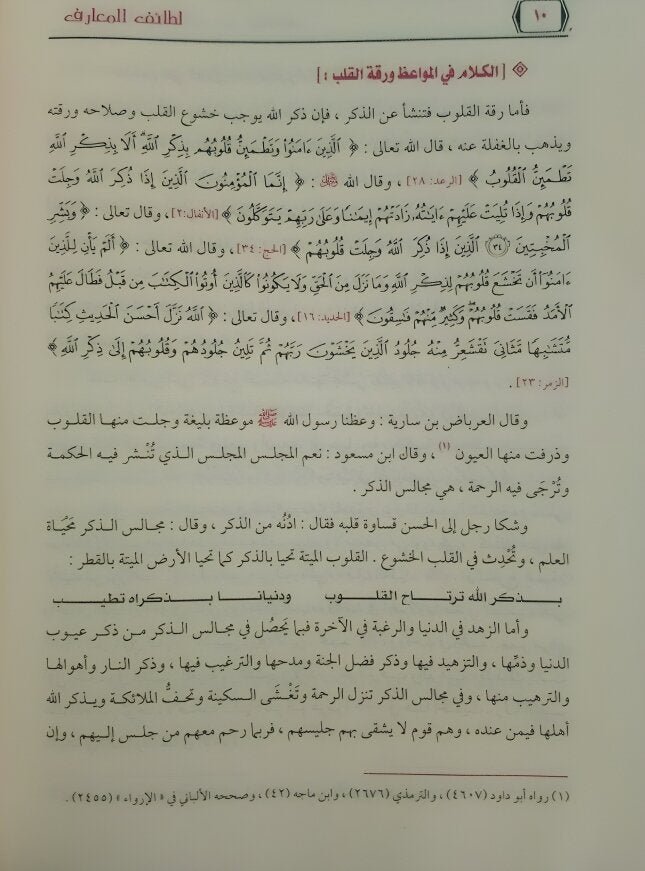 ١٠
لطائف المعارف
[ الكلام في المواعظ ورقة القلب : ]
فأما رقة القلوب فتنشأ عن الذكر ، فإن ذكر الله يوجب خشوع القلب وصلاحه ورقته
ويذهب بالغفلة عنه ، قال الله تعالى : ﴿ الَّذِينَ ءَامَنُوا وَتَطْمَئِنُّ قُلُوبُهُم بِذِكْرِ اللَّهِ أَلَا بِذِكْرِ اللَّهِ
تَطْمَئِنُّ الْقُلُوبُ ﴾ [الرعد: ٢٨] ، وقال الله ﷺ : ﴿ إِنَّمَا الْمُؤْمِنُونَ الَّذِينَ إِذَا ذُكِرَ اللَّهُ وَجِلَتْ
قُلُوبُهُمْ وَإِذَا تُلِيَتْ عَلَيْهِمْ ءَايَاتُهُ زَادَتْهُمْ إِيمَانًا وَعَلَى رَبِّهِمْ يَتَوَكَّلُونَ ﴾ [الأنفال:٢] ، وقال تعالى : ﴿ وَبَشِّرِ
الْمُخْبِتِينَ ٣٤ الَّذِينَ إِذَا ذُكِرَ اللَّهُ وَجِلَتْ قُلُوبُهُمْ ﴾ [الحج: ٣٤] ، وقال الله تعالى : ﴿ أَلَمْ يَأْنِ لِلَّذِينَ
ءَامَنُوا أَن تَخْشَعَ قُلُوبُهُمْ لِذِكْرِ اللَّهِ وَمَا نَزَلَ مِنَ الْحَقِّ وَلَا يَكُونُوا كَالَّذِينَ أُوتُوا الْكِتَابَ مِن قَبْلُ فَطَالَ عَلَيْهِمُ
الْأَمَدُ فَقَسَتْ قُلُوبُهُمْ وَكَثِيرٌ مِّنْهُمْ فَاسِقُونَ ﴾ [الحديد: ١٦] ، وقال تعالى : ﴿ اللَّهُ نَزَّلَ أَحْسَنَ الْحَدِيثِ كِتَابًا
مُّتَشَابِهًا مَّثَانِيَ تَقْشَعِرُّ مِنْهُ جُلُودُ الَّذِينَ يَخْشَوْنَ رَبَّهُمْ ثُمَّ تَلِينُ جُلُودُهُمْ وَقُلُوبُهُمْ إِلَى ذِكْرِ اللَّهِ ﴾
[الزمر: ٢٣] .
وقال العرباض بن سارية : وعظنا رسول الله ﷺ موعظة بليغة وجلت منها القلوب
وذرفت منها العيون (١) ، وقال ابن مسعود : نعم المجلس المجلس الذي تُنْشر فيه الحكمة
وتُرْجَى فيه الرحمة ، هي مجالس الذكر .
وشكا رجل إلى الحسن قساوة قلبه فقال : ادْنُه من الذكر ، وقال : مجالس الذكر مَحْيَاة
العلم ، وتُحْدِث في القلب الخشوع . القلوب الميتة تحيا بالذكر كما تحيا الأرض الميتة بالقطر :
بـذكر الله ترتـاح القلـوب ودنيانـا بـذكراه تطيـب
وأما الزهد في الدنيا والرغبة في الآخرة فبما يَحصُل في مجالس الذكر من ذكر عيوب
الدنيا وذمِّها ، والتزهيد فيها وذكر فضل الجنة ومدحها والترغيب فيها ، وذكر النار وأهوالها
والترهيب منها ، وفي مجالس الذكر تنزل الرحمة وتَغْشَى السكينة وتحفُّ الملائكة ويذكر الله
أهلها فيمن عنده ، وهم قوم لا يشقى بهم جليسهم ، فربما رحم معهم من جلس إليهم ، وإن
(١) رواه أبو داود (٤٦٠٧) ، والترمذي (٢٦٧٦) ، وابن ماجه (٤٢) ، وصححه الألباني في «الإرواء» (٢٤٥٥) .